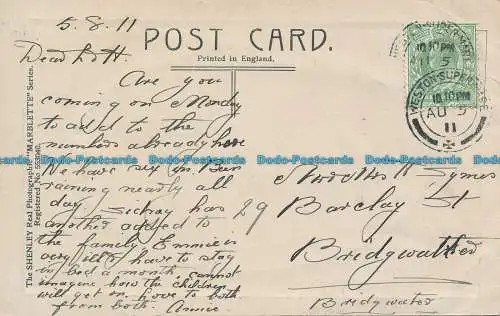 5.8.11
POST CARD.
Printed in England.
The SHENLEY Real Photographic "MARBLETTE" Series.
Dear L & H.
Are you
coming on Monday
to add to the
numbers already here
We have six in. Been
raining nearly all
day. has
another added to
the family. Emmie is
very ill & have to stay
in bed a month. cannot
imagine how the children
will get on. Love to both
from both. Annie.
WESTON-SUPER-MARE
10.10 PM
AU 5
11
WESTON-SUPER-MARE
10.10 PM
AU 5
11
Symes
29 Barclay St
Bridgwater
Bridgwater
Dodo-Postcards Dodo-Postcards Dodo-Postcards Dodo-Postcards Dodo-Postcards